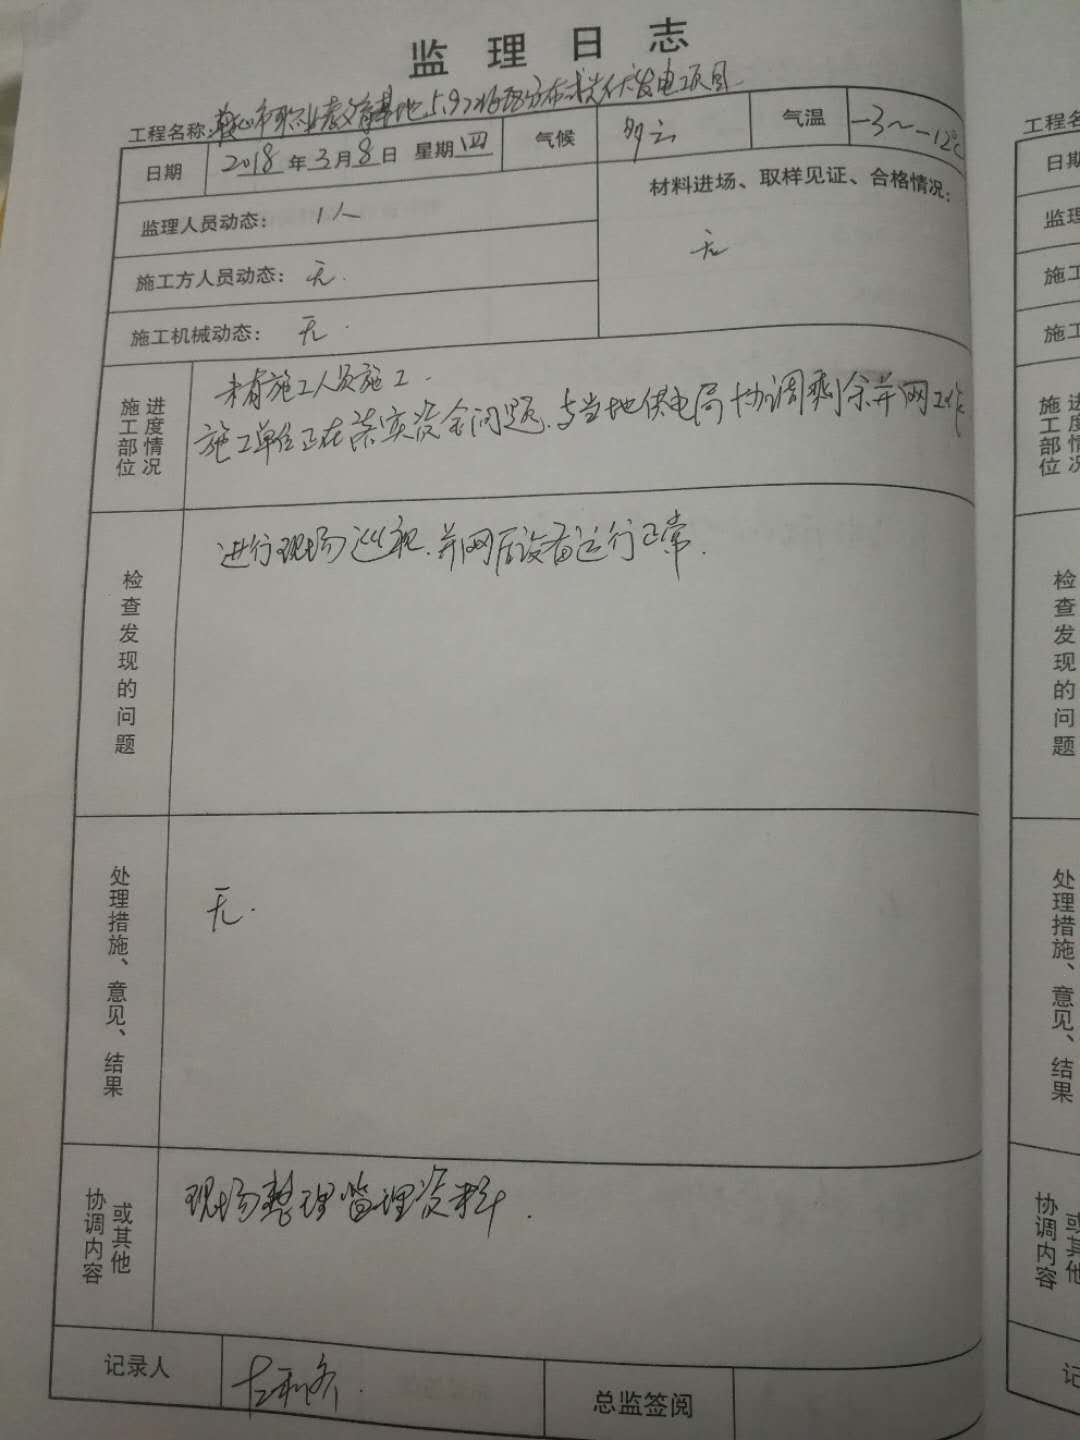 监理日志
工程名称:鞍山市职业教育基地5.9724MW分布式光伏发电项目
日期 2018年3月8日 星期四 气候 多云 气温 -3～-12℃
监理人员动态: 1人
材料进场、取样见证、合格情况:
无
施工方人员动态: 无.
施工机械动态: 无.
施工部位
进度情况
未有施工人员施工.
施工单位正在落实资金问题.与当地供电局协调剩余并网工作
检查发现的问题
进行现场巡视.并网后设备运行正常.
处理措施、意见、结果
无.
协调内容
或其他
现场整理监理资料.
记录人
总监签阅
工程名
日期
监理
施工
施工
施工部位
检查发现的问题
处理措施、意见、结果
协调内容